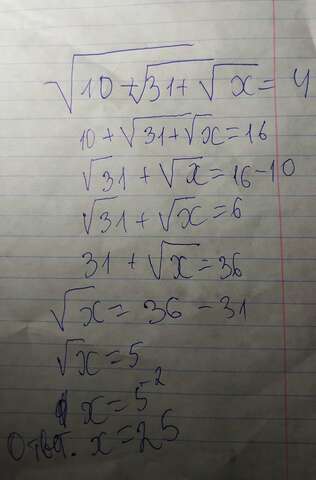 √10+√31+√x=4
10+√31+√x=16
√31+√x=16-10
√31+√x=6
31+√x=36
√x=36-31
√x=5
x=5²
Ответ. x=25